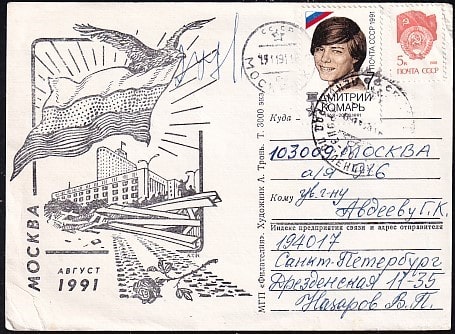 МОСКВА
АВГУСТ
1991
МГП «Филателия». Художник А. Тронь. Т. 3000 экз.
ПОЧТА СССР 1991
ДМИТРИЙ
КОМАРЬ
5к
ПОЧТА СССР
СССР
МОС
Куда
103009 МОСКВА
а/я 926
Кому ув. г-ну
Авдееву Г.К.
Индекс предприятия связи и адрес отправителя
194017
Санкт-Петербург
Дрезденская 11-35
Назаров В.П.